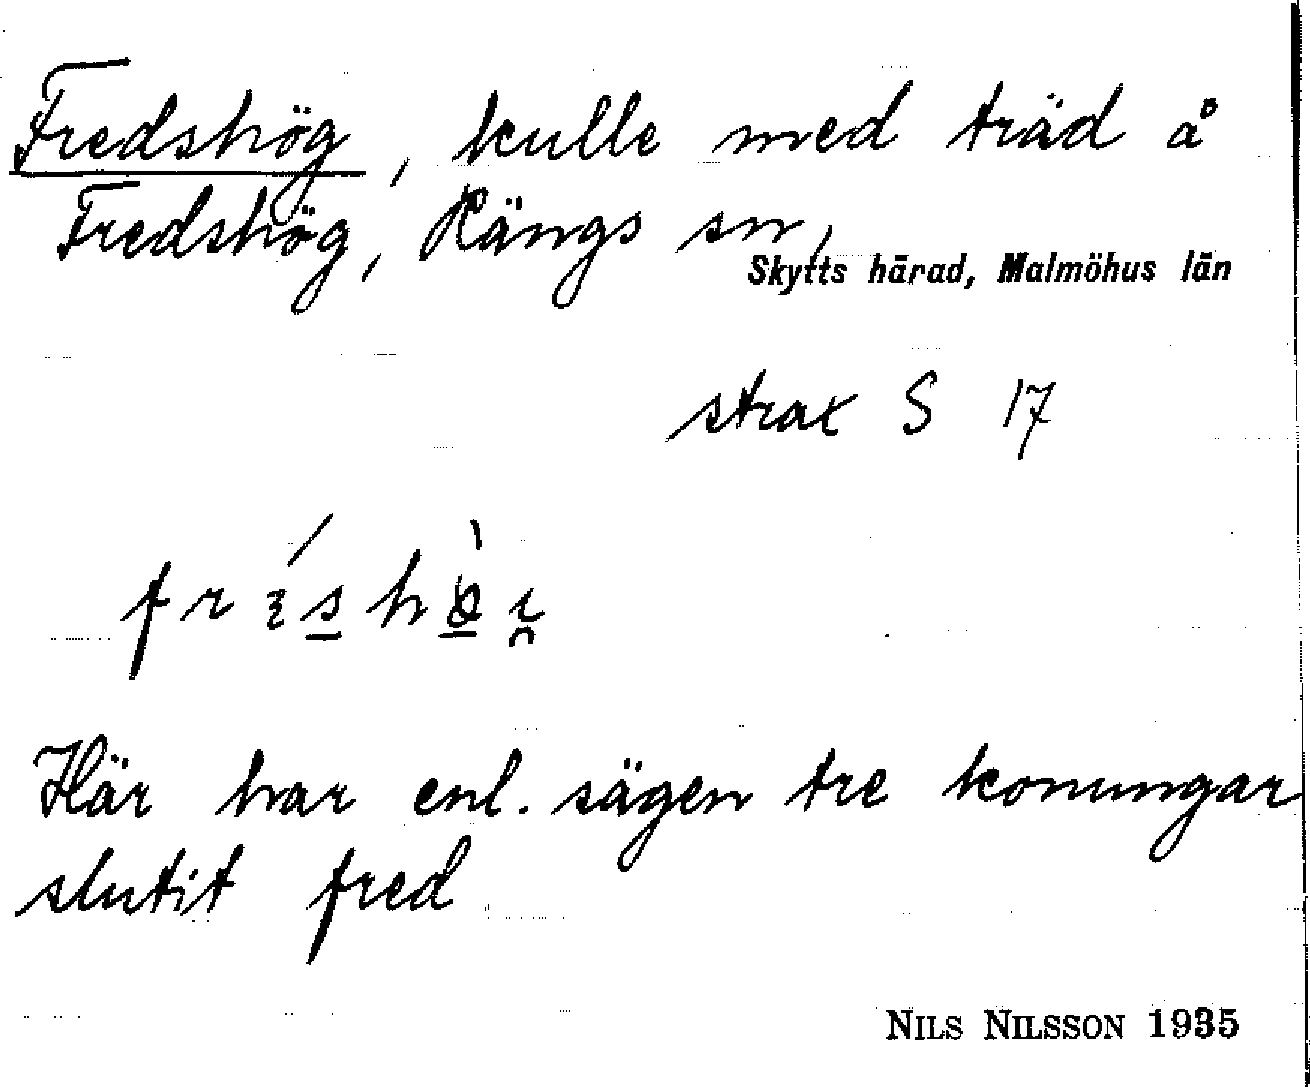 Fredshög, kulle med träd å
Fredshög, Rängs sn,
Skytts härad, Malmöhus län
strax S 17
Här har enl. sägen tre konungar
slutit fred
NILS NILSSON 1935